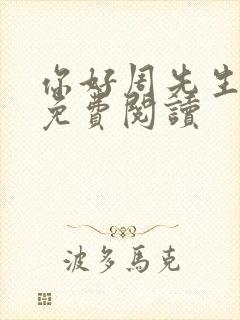 你好周先生
免費閱讀
波多馬克